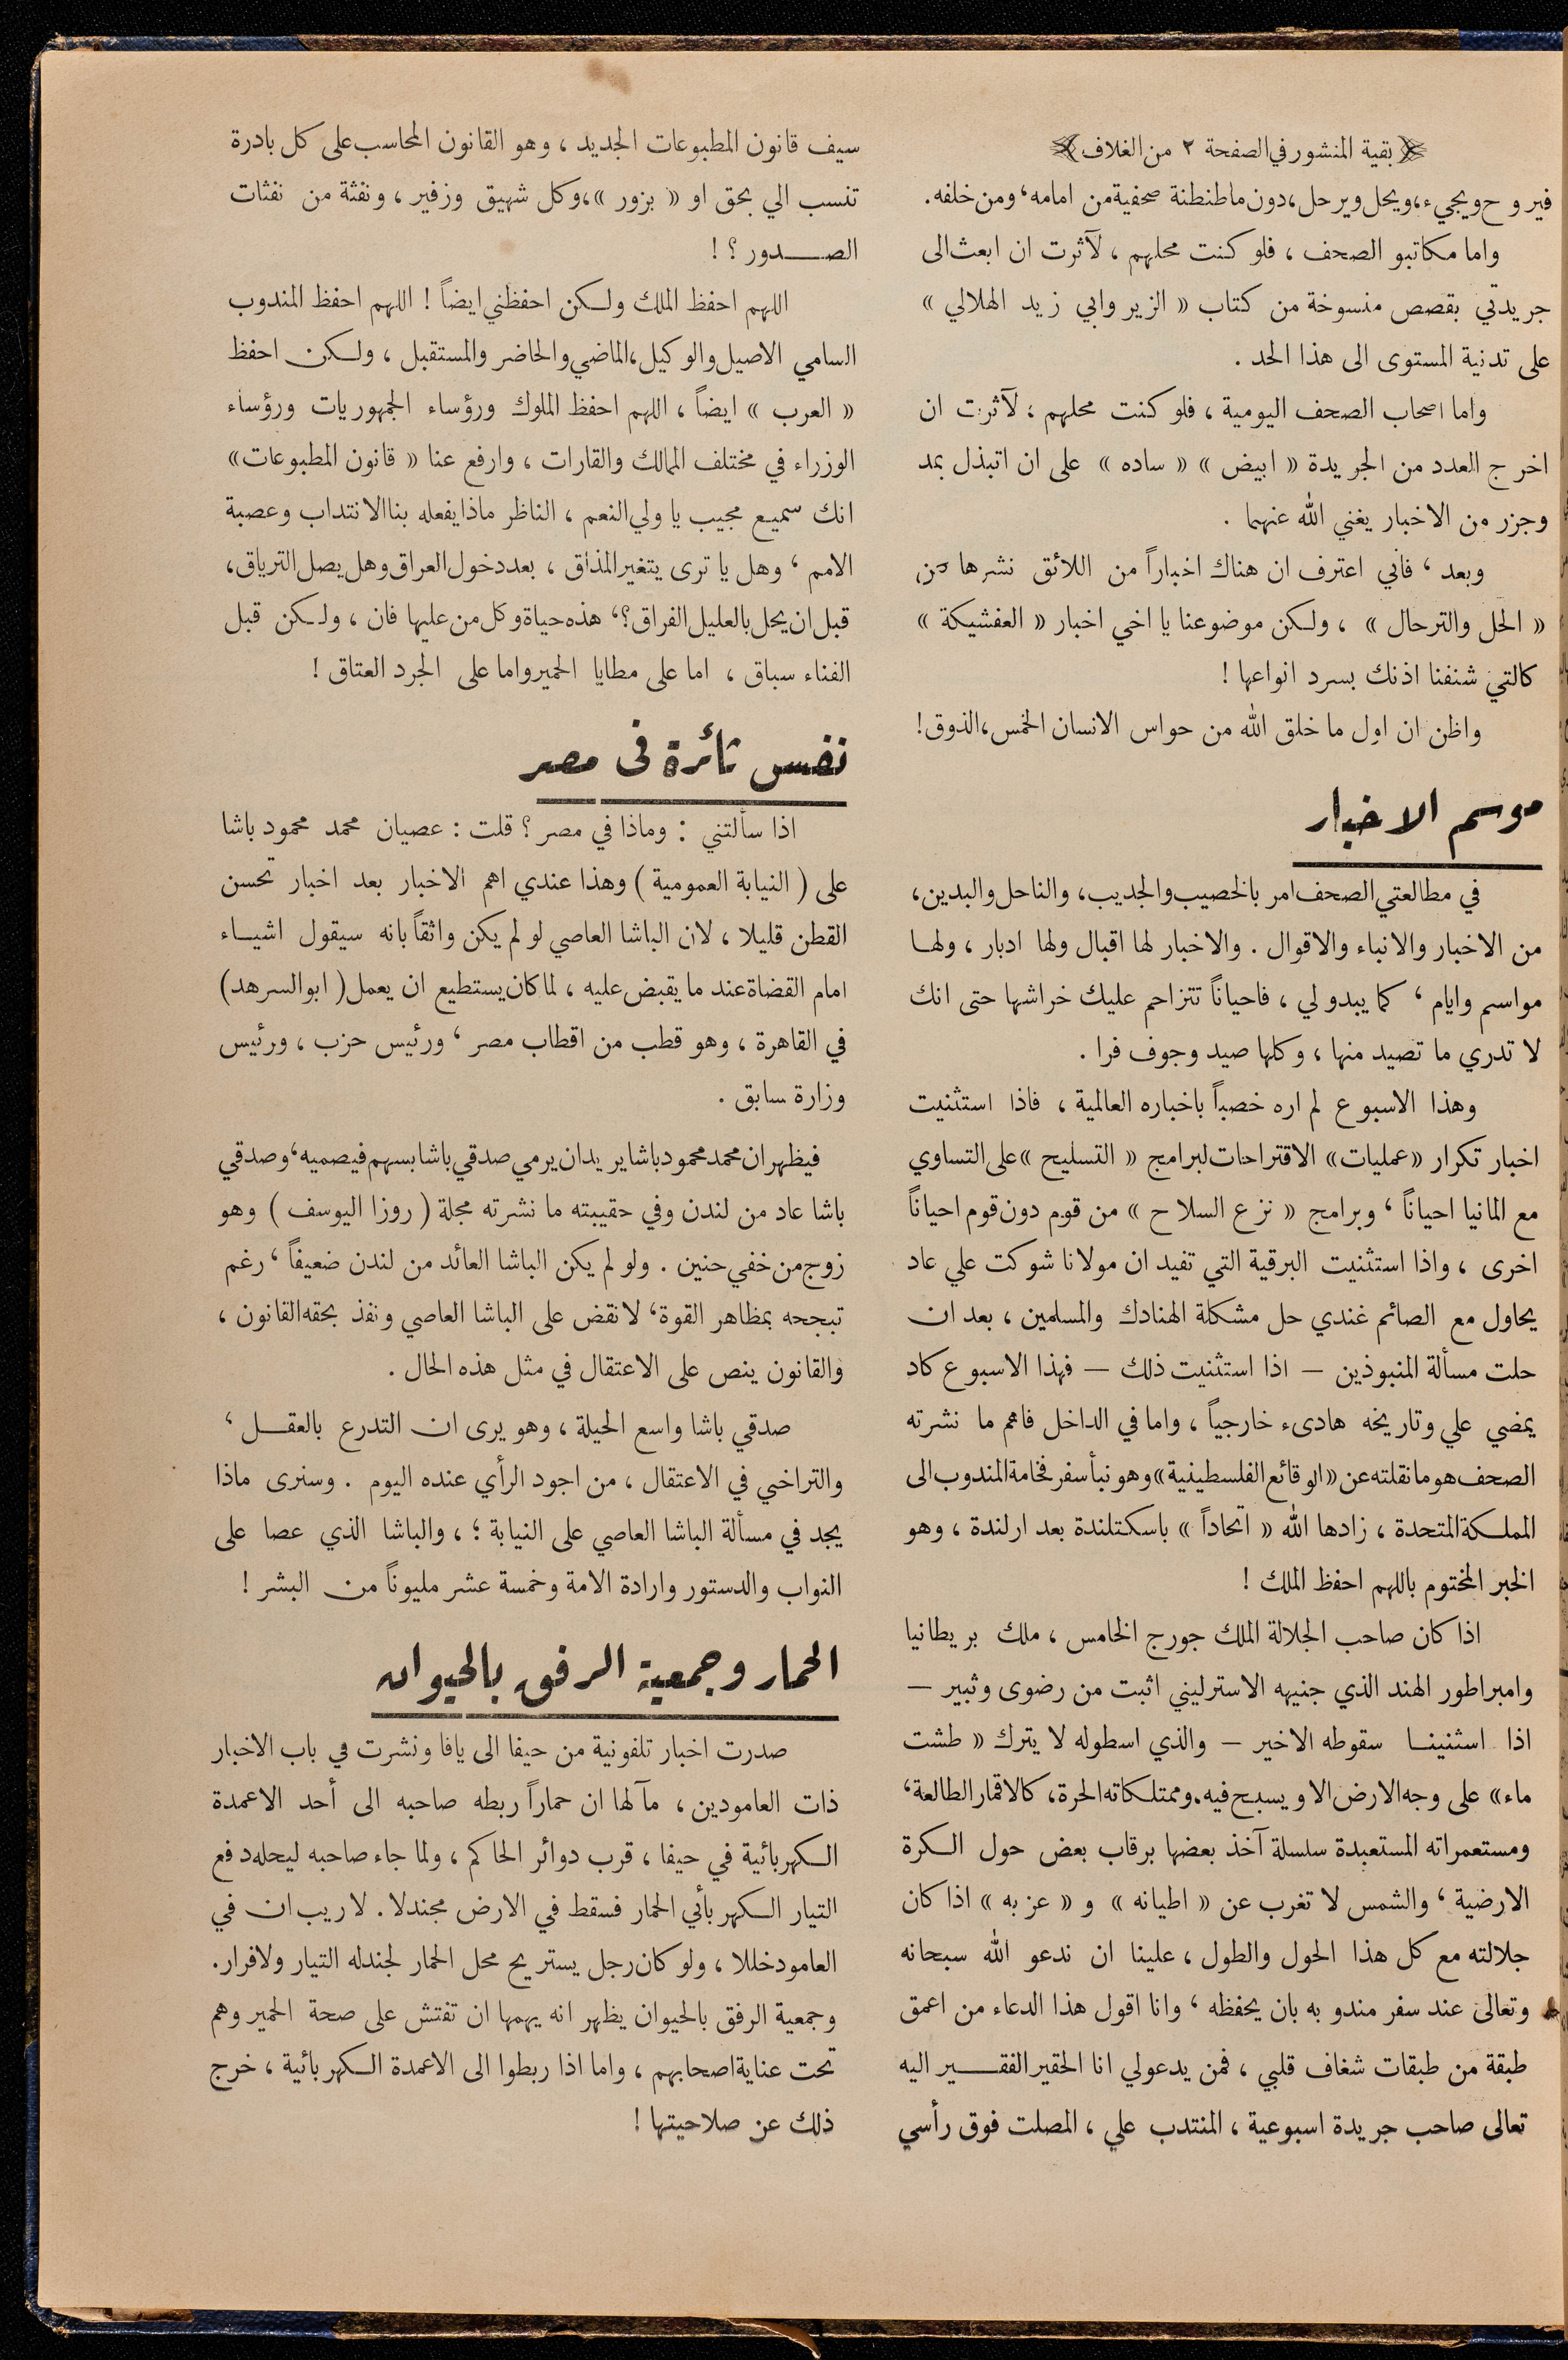 بقية المنشور في الصفحة ٢ من الغلاف
فيروح ويجيء، ويحل ويرحل، دون ما طنطنة صحفية من امامه، ومن خلفه.
واما مكاتبو الصحف، فلو كنت محلهم، لآثرت ان ابعث الى
جريدتي بقصص منسوخة من كتاب « الزير وابي زيد الهلالي »
على تدنية المستوى الى هذا الحد .
واما اصحاب الصحف اليومية، فلو كنت محلهم، لآثرت ان
اخرج العدد من الجريدة « ابيض » « ساده » على ان اتبذل بمد
وجزر من الاخبار يغني الله عنهما .
وبعد، فاني اعترف ان هناك اخباراً من اللائق نشرها من
« الحل والترحال » ، ولكن موضوعنا يا اخي اخبار « العفشيكة »
كالتي شنفنا اذنك بسرد انواعها !
واظن ان اول ما خلق الله من حواس الانسان الخمس، الذوق!
موسم الاخبار
في مطالعتي الصحف امر بالخصيب والجديب، والناحل والبدين،
من الاخبار والانباء والاقوال . والاخبار لها اقبال ولها ادبار ، ولها
مواسم وايام ، كما يبدو لي ، فاحياناً تتزاحم عليك خراشها حتى انك
لا تدري ما تصيد منها ، وكلها صيد وجوف فرا .
وهذا الاسبوع لم اره خصباً باخباره العالمية ، فاذا استثنيت
اخبار تكرار « عمليات » الاقتراحات لبرامج « التسليح » على التساوي
مع المانيا احياناً ، وبرامج « نزع السلاح » من قوم دون قوم احياناً
اخرى ، واذا استثنيت البرقية التي تفيد ان مولانا شوكت علي عاد
يحاول مع الصائم غندي حل مشكلة الهنادك والمسلمين ، بعد ان
حلت مسألة المنبوذين — اذا استثنيت ذلك — فهذا الاسبوع كاد
يمضي علي وتاريخه هادىء خارجياً ، واما في الداخل فاهم ما نشرته
الصحف هو ما نقلته عن « الوقائع الفلسطينية » وهو نبأ سفر فخامة المندوب الى
المملكة المتحدة ، زادها الله « اتحاداً » باسكتلندة بعد ارلندة ، وهو
الخبر المختوم باللهم احفظ الملك !
اذا كان صاحب الجلالة الملك جورج الخامس ، ملك بريطانيا
وامبراطور الهند الذي جنيهه الاسترليني اثبت من رضوى وثبير —
اذا استثنينا سقوطه الاخير — والذي اسطوله لا يترك « طشت
ماء » على وجه الارض الا ويسبح فيه، وممتلكاته الحرة، كالاقمار الطالعة،
ومستعمراته المستعبدة سلسلة آخذ بعضها برقاب بعض حول الكرة
الارضية ، والشمس لا تغرب عن « اطيانه » و « عزبه » اذا كان
جلالته مع كل هذا الحول والطول ، علينا ان ندعو الله سبحانه
وتعالى عند سفر مندوبه بان يحفظه ، وانا اقول هذا الدعاء من اعمق
طبقة من طبقات شغاف قلبي ، فمن يدعو لي انا الحقير الفقير اليه
تعالى صاحب جريدة اسبوعية ، المنتدب علي ، المصلت فوق رأسي
سيف قانون المطبوعات الجديد ، وهو القانون المحاسب على كل بادرة
تنسب الي بحق او « بزور » ، وكل شهيق وزفير ، ونفثة من نفثات
الصدور ؟ !
اللهم احفظ الملك ولكن احفظني ايضاً ! اللهم احفظ المندوب
السامي الاصيل والوكيل، الماضي والحاضر والمستقبل ، ولكن احفظ
« العرب » ايضاً ، اللهم احفظ الملوك ورؤساء الجمهوريات ورؤساء
الوزراء في مختلف الممالك والقارات ، وارفع عنا « قانون المطبوعات »
انك سميع مجيب يا ولي النعم ، الناظر ماذا يفعله بنا الانتداب وعصبة
الامم ، وهل يا ترى يتغير المذاق ، بعد دخول العراق وهل يصل الترياق،
قبل ان يحل بالعليل الفراق ؟، هذه حياة وكل من عليها فان ، ولكن قبل
الفناء سباق ، اما على مطايا الحمير واما على الجرد العتاق !
نفس ثائرة في مصر
اذا سألتني : وماذا في مصر ؟ قلت : عصيان محمد محمود باشا
على ( النيابة العمومية ) وهذا عندي اهم الاخبار بعد اخبار تحسن
القطن قليلا ، لان الباشا العاصي لو لم يكن واثقاً بانه سيقول اشياء
امام القضاة عند ما يقبض عليه ، لما كان يستطيع ان يعمل ( ابو السرهد )
في القاهرة ، وهو قطب من اقطاب مصر ، ورئيس حزب ، ورئيس
وزارة سابق .
فيظهر ان محمد محمود باشا يريد ان يرمي صدقي باشا بسهم فيصميه، وصدقي
باشا عاد من لندن وفي حقيبته ما نشرته مجلة ( روزا اليوسف ) وهو
زوج من خفي حنين . ولو لم يكن الباشا العائد من لندن ضعيفاً ، رغم
تبجحه بمظاهر القوة ، لانقض على الباشا العاصي ونفذ بحقه القانون ،
والقانون ينص على الاعتقال في مثل هذه الحال .
صدقي باشا واسع الحيلة ، وهو يرى ان التدرع بالعقل ،
والتراخي في الاعتقال ، من اجود الرأي عنده اليوم . وسنرى ماذا
يجد في مسألة الباشا العاصي على النيابة ؛ ، والباشا الذي عصا على
النواب والدستور وارادة الامة وخمسة عشر مليوناً من البشر !
الحمار وجمعية الرفق بالحيوان
صدرت اخبار تلفونية من حيفا الى يافا ونشرت في باب الاخبار
ذات العامودين ، مآلها ان حماراً ربطه صاحبه الى أحد الاعمدة
الكهربائية في حيفا ، قرب دوائر الحاكم ، ولما جاء صاحبه ليحله دفع
التيار الكهربائي الحمار فسقط في الارض مجندلا . لا ريب ان في
العامود خللا ، ولو كان رجل يستريح محل الحمار لجندله التيار ولا فرار.
وجمعية الرفق بالحيوان يظهر انه يهمها ان تفتش على صحة الحمير وهم
تحت عناية اصحابهم ، واما اذا ربطوا الى الاعمدة الكهربائية ، خرج
ذلك عن صلاحيتها !